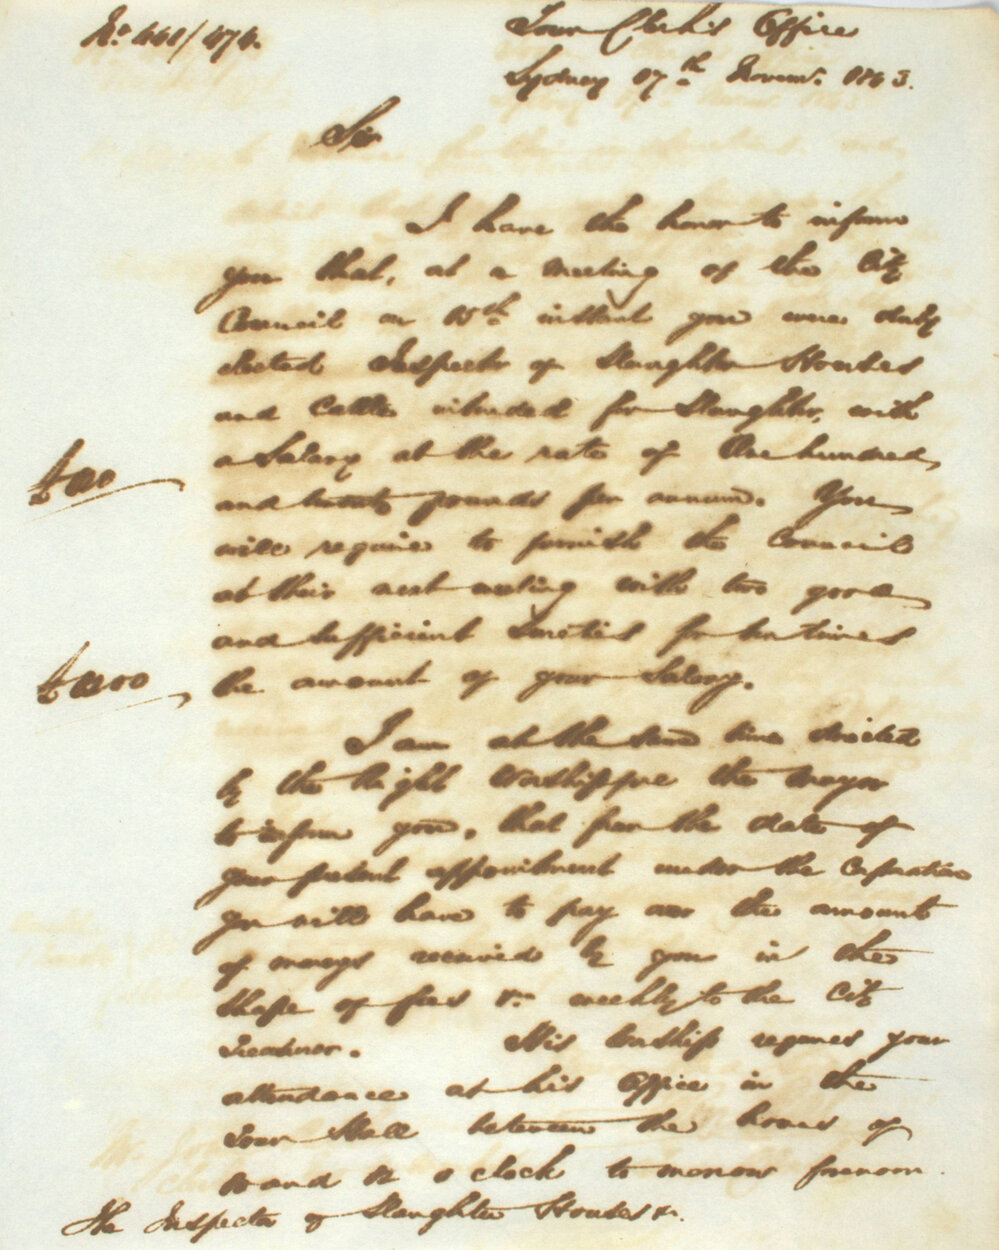 No. 441/474.
Town Clerk's Office
Sydney 17th Novemr. 1843.
Sir
I have the honor to inform
you that, at a meeting of the City
Council on 15th instant you were duly
elected Inspector of Slaughter Houses
and Cattle intended for Slaughter, with
a Salary at the rate of One hundred
£120
and twenty pounds per annum. You
will require to furnish the Council
at their next meeting with two good
and sufficient Sureties for ten times
£1200
the amount of your Salary.
I am at the same time directed
by the Right Worshipful the Mayor
to inform you, that from the date of
your present appointment under the Corporation
you will have to pay over the amount
of moneys received by you in the
shape of fees &c. weekly to the City
Treasurer. His Worship requires your
attendance at his Office in the
Town Hall between the hours of
10 and 12 o'clock to morrow forenoon.
The Inspector of Slaughter Houses &c.